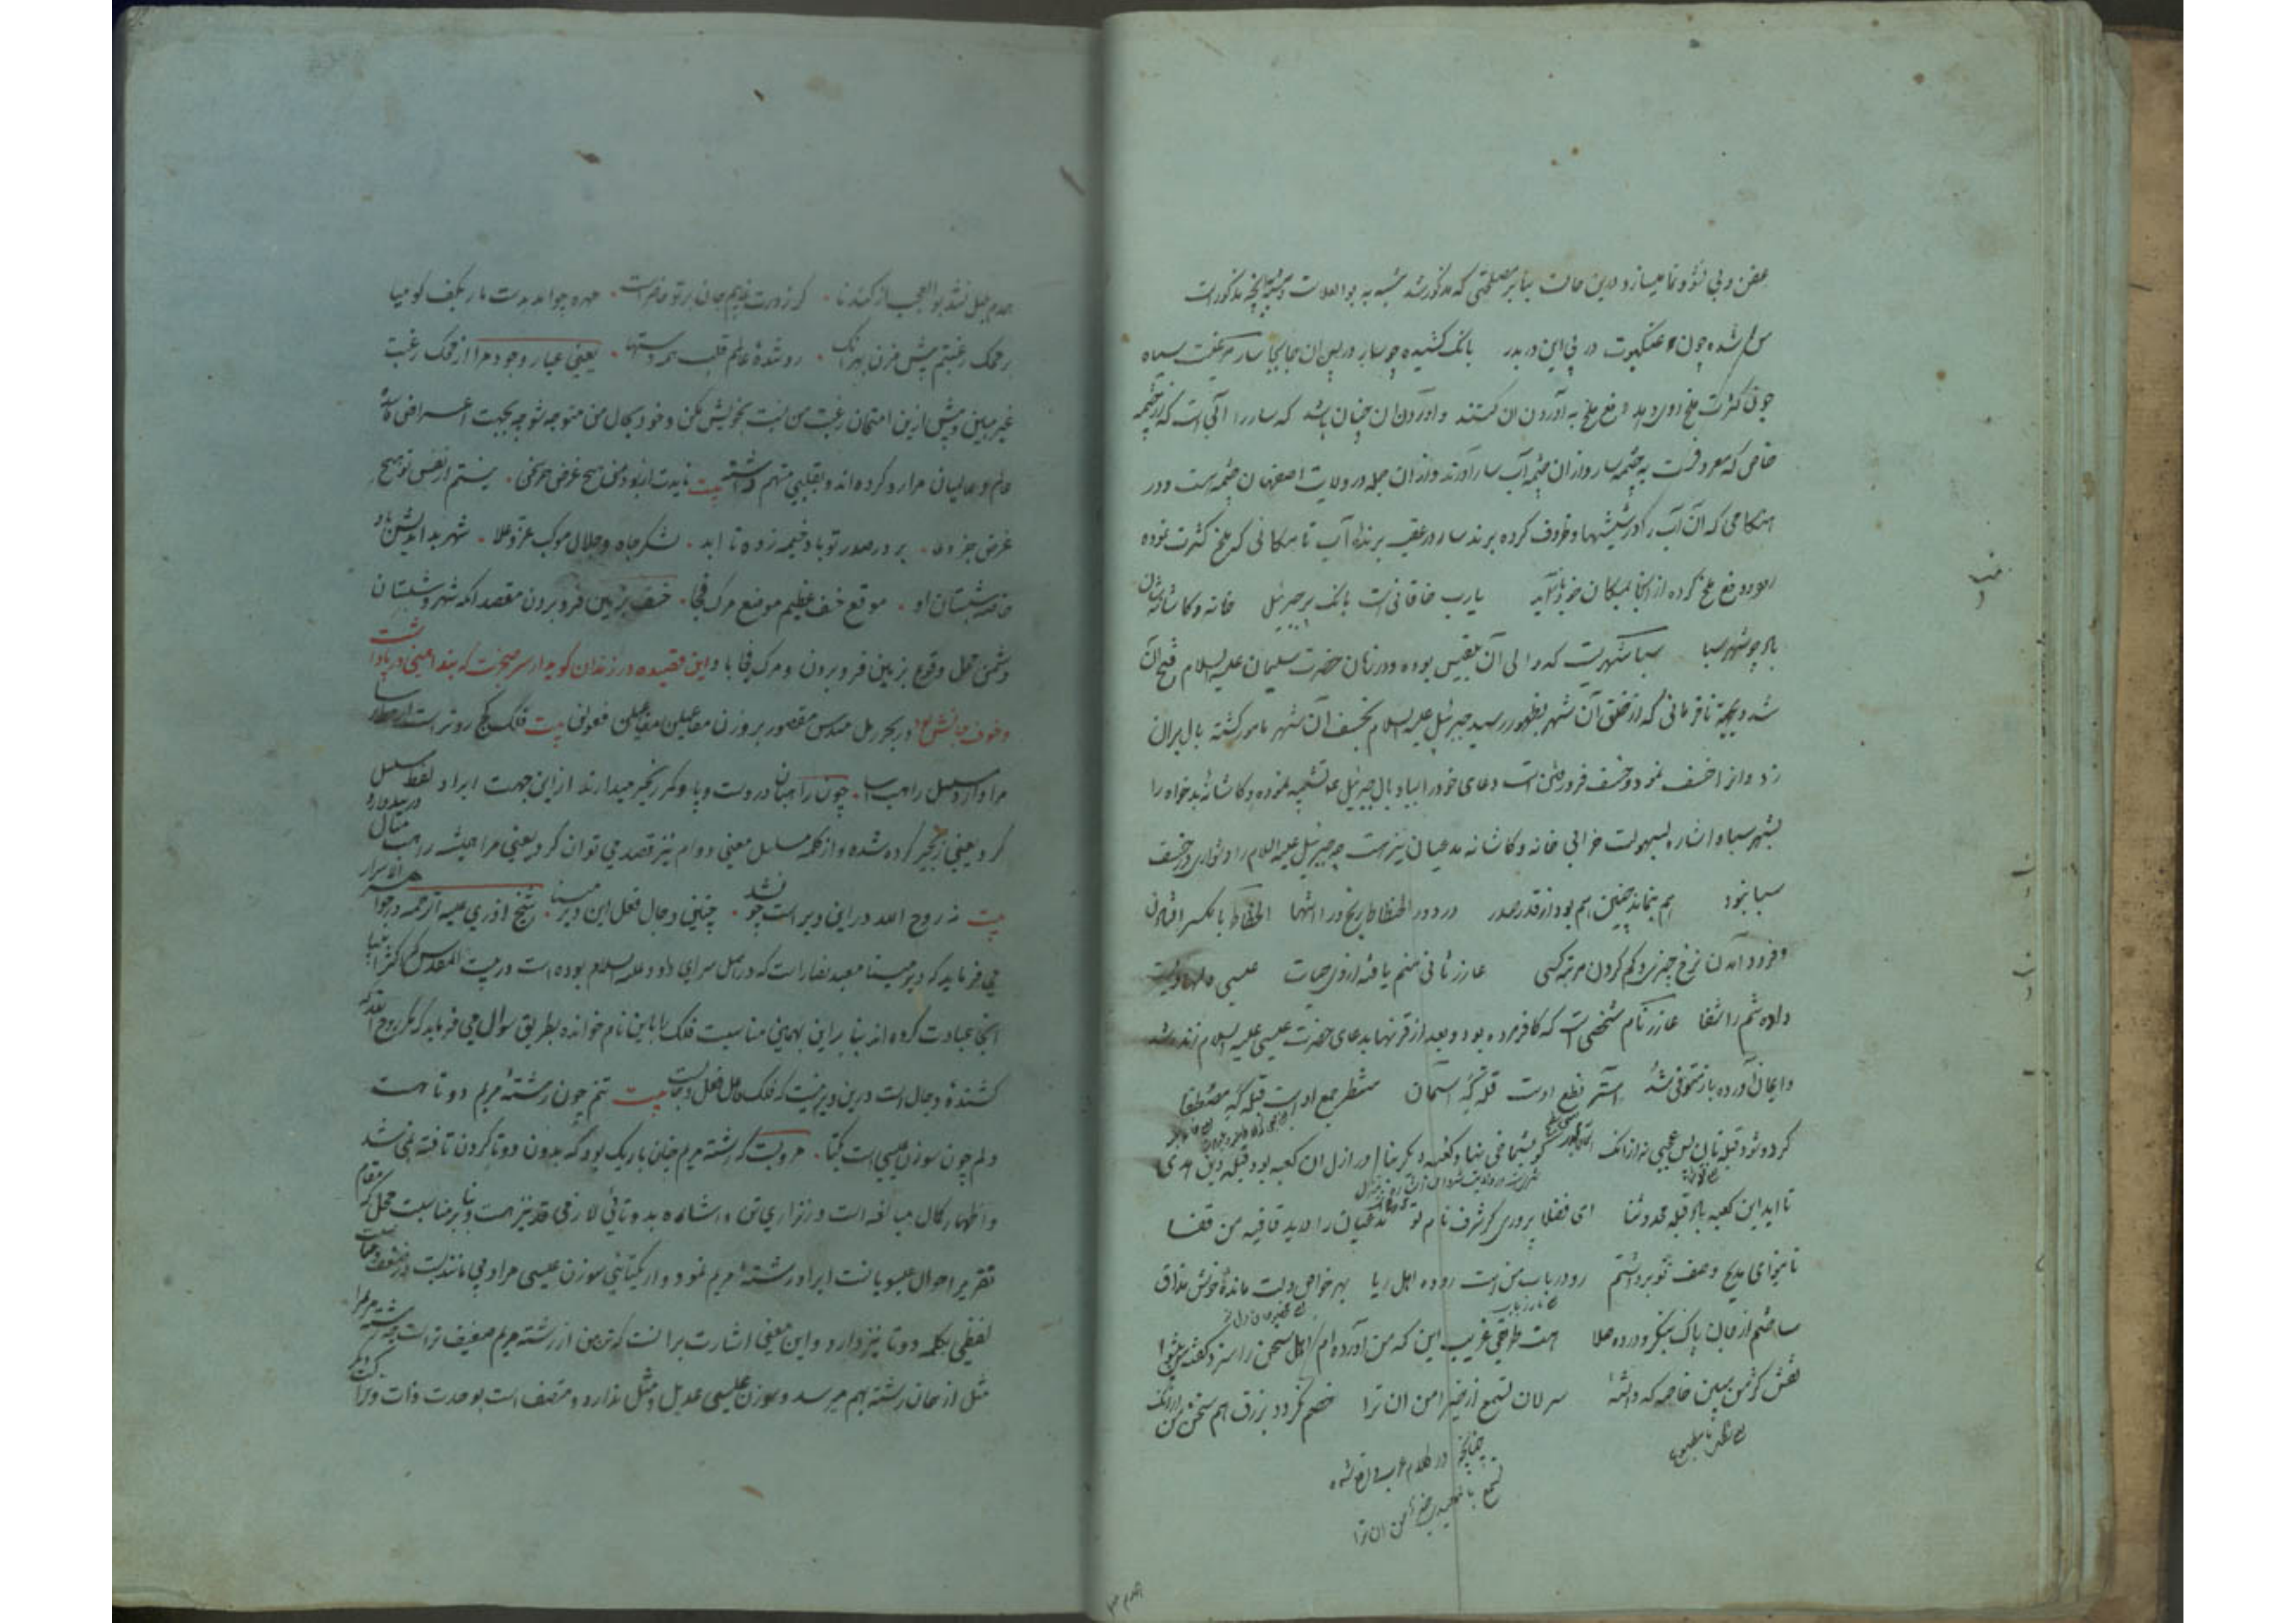 عفن و بی نشو و نما میسازد و درین حالت بنابر مصلحتی که مذکور شد مشبه به بوالعلات و مشبه آنچه مذکور است
شده چون عنکبوت در پی این در بدر بانگ کشیده چو سار در پس آن جابجا سار مرغیست سیاه
چون کثرت ملخ روی دهد دفع ملخ به آوردن آن کنند و آوردن آن چنان باشد که سار را آبی است که از چشمه
خاص که معروفست به چشمه سار و از آن چشمه آب سار آورند و از آن جمله در ولایت اصفهان چشمه است و در
هنگامی که آن آب را در شیشها و ظروف کرده برند سار در عقب برنده آب تا مکانی که ملخ کثرت نموده
رود و دفع ملخ کرده از آنجا بمکان خود باز آید یارب خاقانی است بانگ پر جبرئیل خانه و کاشانه شان
باد چو شهر سبا سبا شهریست که والی آن بلقیس بوده و در زمان حضرت سلیمان علیه السلام فتح آن
شد و بجهة نافرمانی که از خلق آن شهر بظهور رسید جبرئیل علیه السلام بخسف آن شهر مامور گشته بال بر آن
زد و آنرا خسف نمود و خسف فرو رفتن است دعای خود را ببال جبرئیل تشبیه نموده و کاشانه بدخواه را
بشهر سبا و اشاره بسهولت خرابی خانه و کاشانه مدعیان نیز هست چه جبرئیل علیه السلام را دشواری در خسف
سبا نبود هم بنماند چنین هم بود از قدر صدر در دور انحطاط رنج ورا انتها انحطاط بالکسر افتادن
و فرود آمدن نرخ چیزی و کم کردن مرتبه کسی عازر ثانی منم یافته از وی حیات عیسی دلها ویست
داده تنم را شفا عازر نام شخصی است که کافر مرده بود و بعد از قرنها بدعای حضرت عیسی علیه السلام زنده شد
و ایمان آورده باز متوفی شد قلبه گه آسمان منتظر جمع اوست قبله گه مصطفا
گر دو شود قبله تان بس عجبی نه از آنک در ازل آن کعبه بود قبله دین هدی
تا ابد این کعبه باد قبله مجد و ثنا ای فضلا پروری کز شرف نام تو مدعیان را درید قافیه من قفا
تا بنوای مدیح وصف تو برداشتم رود رباب منست روده اهل ریا بهر خواص دلت مانده خوش مذاق
ساختم از جان پاک بنگر و در ده صلا هست طریقی غریب این که من آورده ام اهل سخن را سزد گفته من پیشوا
نقش کژ من مبین خاصه که دانسته سر لان تسمع از خیر من ان ترا خصم نگردد بزرق هم سخن من از آنک
چنانچه در کلام عرب واقع شده
تسمع بالمعیدی خیر من ان تراه
همدم بلبل نشد بوالعجب از گندنا گر ز درت غایبم جان بر تو حاضر است مهره چو آمد بدست مار بکف گو میا
بر محک رغبتم بیش مزن بهر آنک رد شده عالم قلب همه دستها یعنی عیار وجود مرا از محک رغبت
غیر مبین و بیش ازین امتحان رغبت من نسبت بخویش مکن و خود بحال من متوجه شو چه بجهت اعراض فاسده
عالم و عالمیان مرا رد کرده اند و بقلبی متهم داشته بیت نایدت از بود من هیچ غرض جز سخن نیستم از نفس تو هیچ
غرض جز دعا بر در صدر تو باد خیمه زده تا ابد لشکر جاه و جلال موکب عز و علا شهر بد اندیش باد
خاصه شبستان او موقع خسف عظیم موضع مرگ فجا خسف بزمین فرو بردن مقصد آنکه شهر و شبستان
دشمن محل وقوع بزمین فرو بردن و مرگ فجا باد و این قصیده در زندان گوید از سر صحبت که بند آهنین در پا داشت
و خوف جانش بود در بحر رمل مسدس مقصور بر وزن مفاعیلن مفاعیلن فعولن بیت فلک کج روتر است از خط ترسا
مرا دارد مسلسل راهب آسا چون راهبان در دست و پا و کمر زنجیر میدارند از این جهت ایراد لفظ مسلسل
کرد یعنی زنجیر کرده شده و از کلمه مسلسل معنی دوام نیز قصد می توان کرد یعنی مرا همیشه راهب مثال
بیت نه روح الله در این دیر است چون شد چنین دجال فعل این دیر مینا شیخ آذری علیه الرحمه در جواهر الاسرار
می فرماید که دیر مینا معبد نصارا است که در اصل سرای داود علیه السلام بوده است در بیت المقدس که اکثر انبیا
آنجا عبادت کرده اند بنا بر این بهمین مناسبت فلک را باین نام خوانده بطریق سوال می فرماید که مگر روح الله که
کشنده دجال است درین دیر نیست که فلک دجال فعل و جفاست بیت تنم چون رشته مریم دو تا هست
دلم چون سوزن عیسی است یکتا مرویست که رشته مریم چنان باریک بود که بدون دوتا کردن تافته نمی شد
و اظهار کمال مبالغه است در نزاری تن و اشاره به دوتائی لازمی قد نیز هست و بنا بر مناسبت محل که مقام
تقریر احوال عیسویانست ایراد رشته مریم نمود و از یکتایی سوزن عیسی مراد بی مانندیست در ضعف
لفظی بکلمه دوتا نیز دارد و این معنی اشارت بر آنست که تن من از رشته مریم ضعیف تر است چه رشته مریم را
مثل از همان رشته بهم میرسد و سوزن عیسی عدیل و مثل ندارد و متصف است بوحدت ذات و مرا